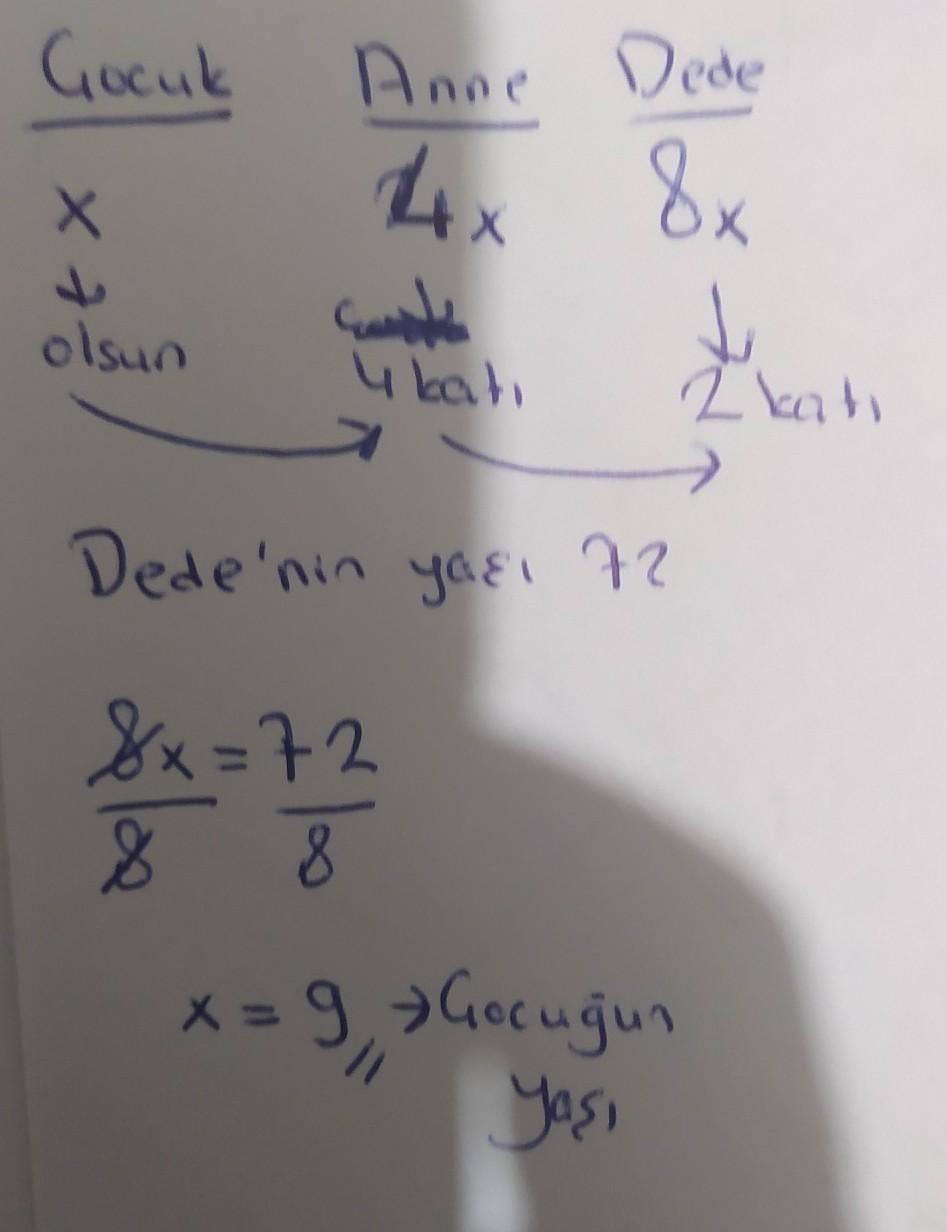 Çocuk Anne Dede
x 4x 8x
olsun 4 katı 2 katı
Dede'nin yaşı 72
8x = 72
8 8
x = 9 → Çocuğun
yaşı